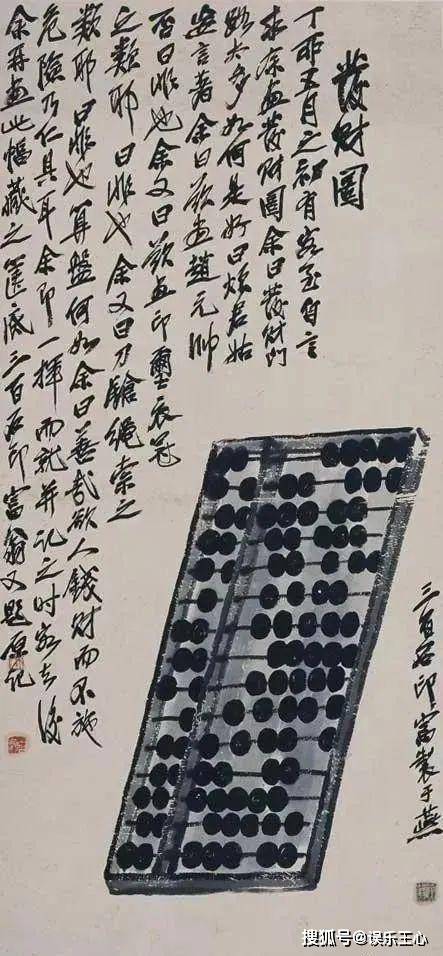 發財圖
丁卯五月之初有客至自言
求余畫發財圖余曰發財門
路太多如何是好曰煩君姑
妄言著余曰欲畫趙元帥
否曰非也余又曰欲畫印璽衣冠
之類耶曰非也余又曰刀鎗繩索之
類耶曰非也算盤何如余曰善哉欲人錢財而不施
危險乃仁具耳余即一揮而就并記之時客去後
余再畫此幅藏之篋底三百石印富翁又題原記
三百石印富製于燕
搜狐号@娱乐王心